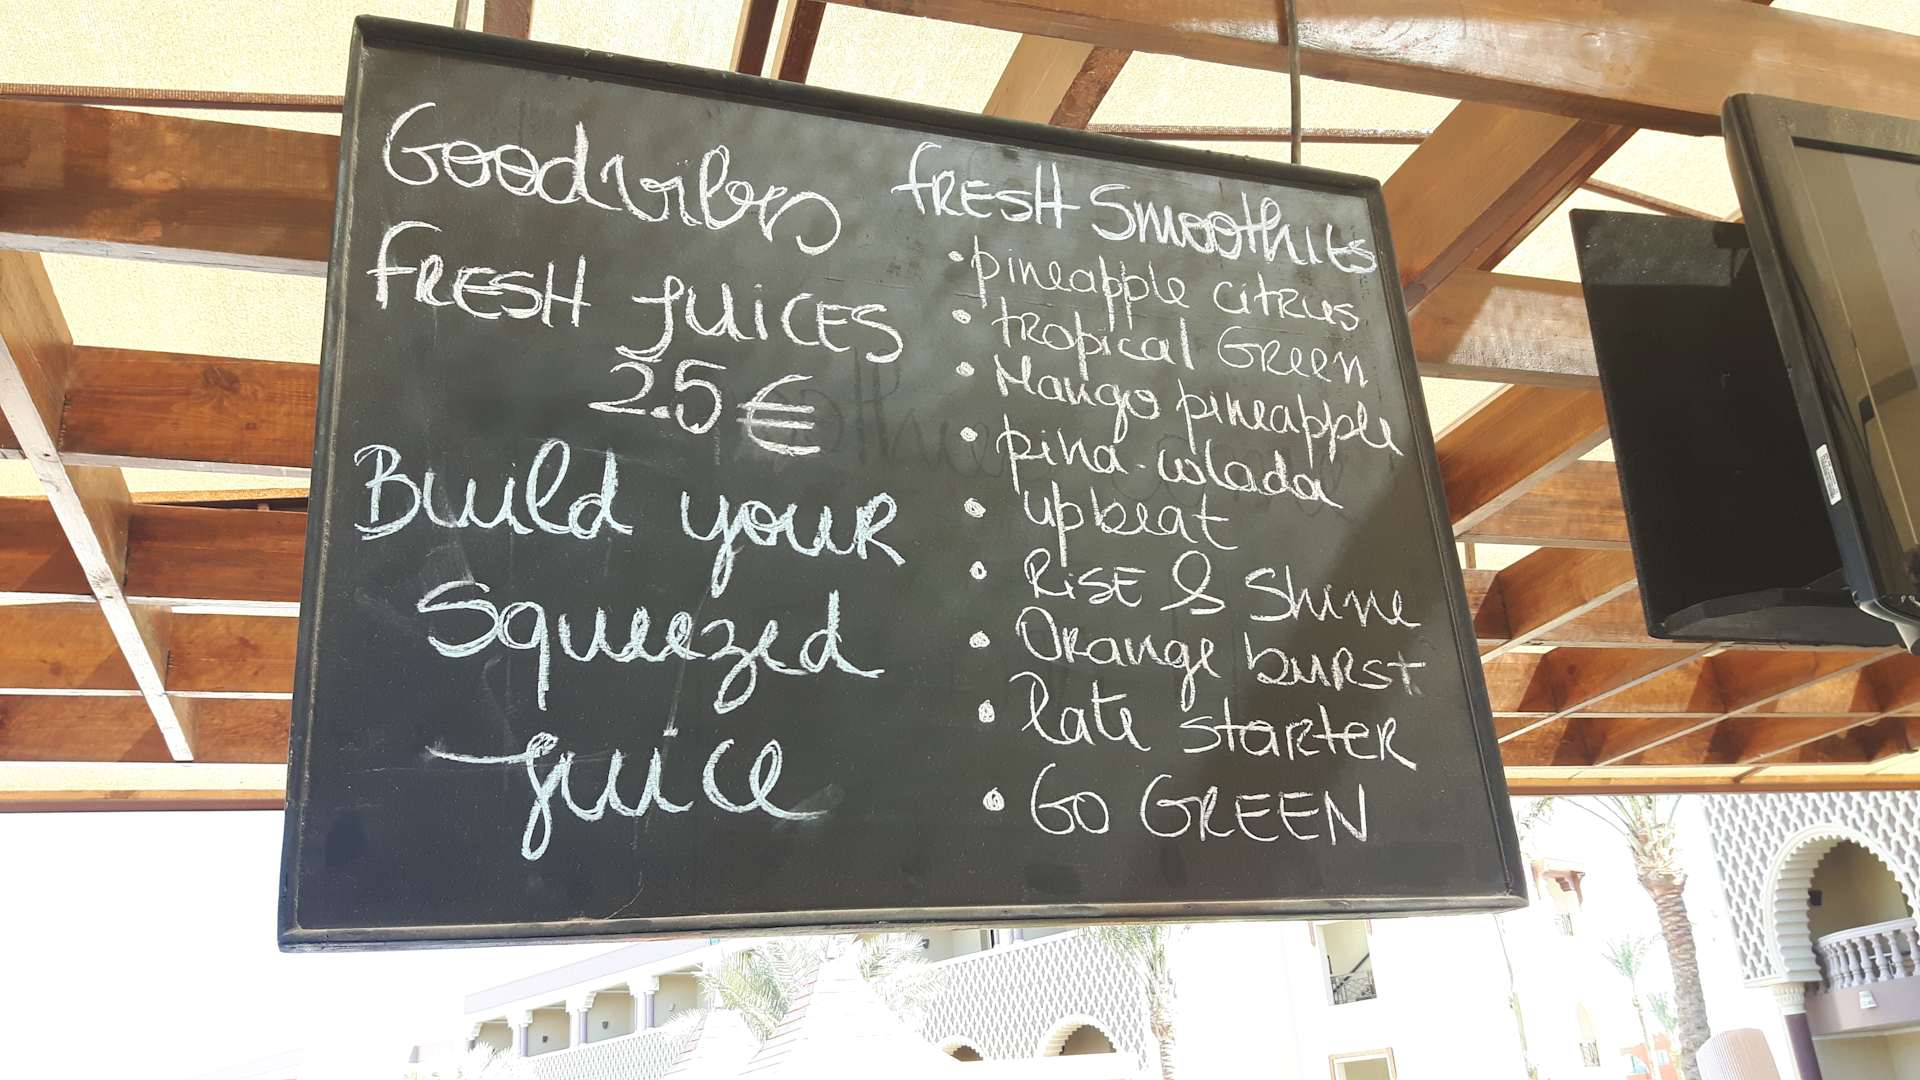 Goodvibes
FRESH JUICES
2.5€
Build youR
Squeezed
Juice
FRESH Smoothies
• pineapple citrus
• tropical Green
• Mango pineapple
• pina-colada
• upbeat
• RiSE & Shine
• Orange buRst
• late starter
• GO GREEN